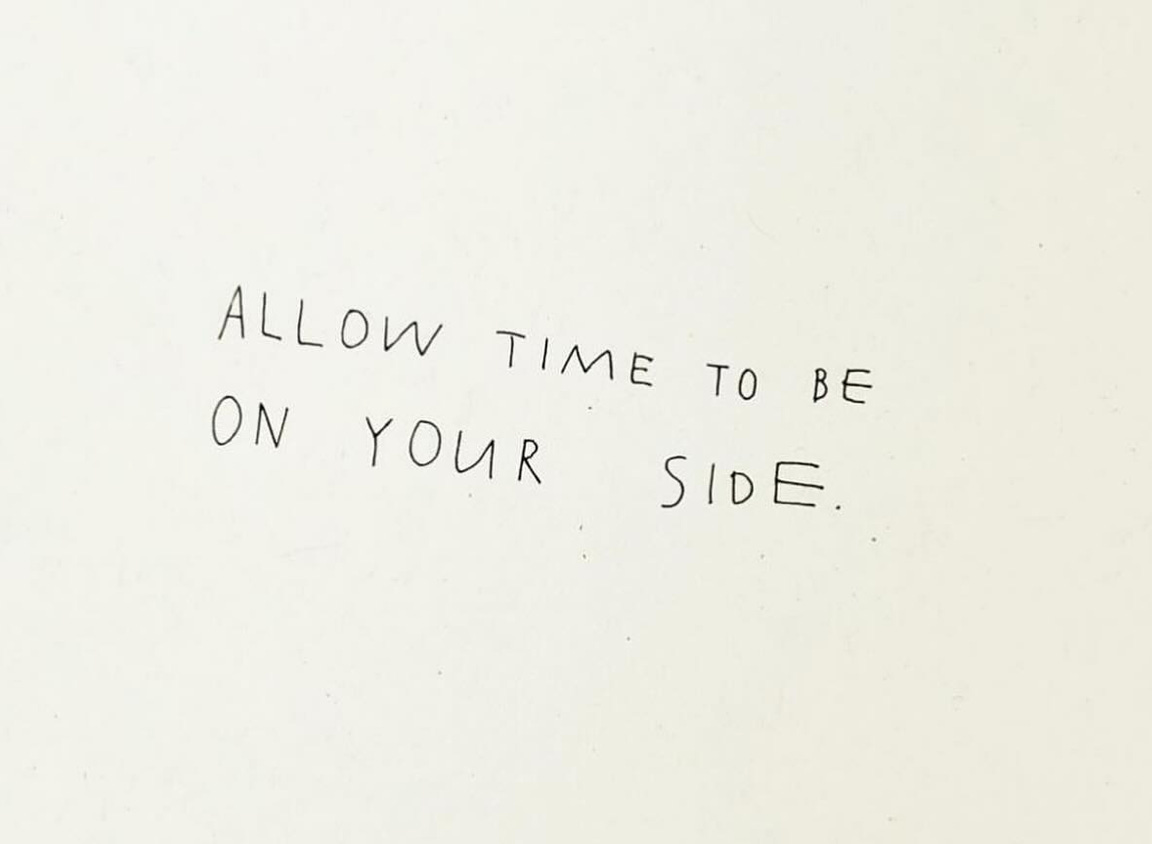 ALLOW TIME TO BE
ON YOUR SIDE.